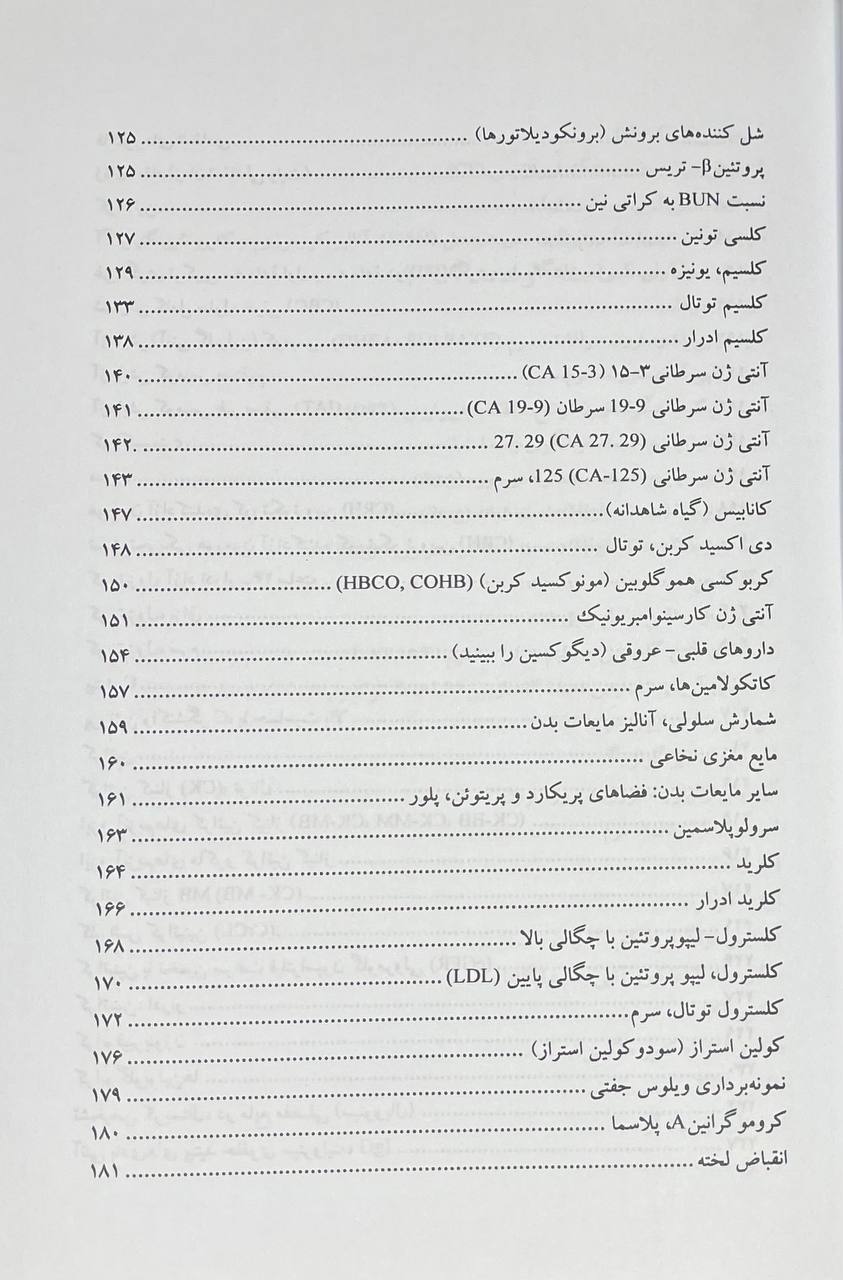 شل کننده‌های برونش (برونکودیلاتورها) ........ ۱۲۵
پروتئین β- تریس ........ ۱۲۵
نسبت BUN به کراتی نین ........ ۱۲۶
کلسی تونین ........ ۱۲۷
کلسیم، یونیزه ........ ۱۲۹
کلسیم توتال ........ ۱۳۳
کلسیم ادرار ........ ۱۳۸
آنتی ژن سرطانی ۳-۱۵ (CA 15-3) ........ ۱۴۰
آنتی ژن سرطانی 9-19 سرطان (CA 19-9) ........ ۱۴۱
آنتی ژن سرطانی 27. 29 (CA 27. 29) ........ ۱۴۲
آنتی ژن سرطانی 125 (CA-125)، سرم ........ ۱۴۳
کانابیس (گیاه شاهدانه) ........ ۱۴۷
دی اکسید کربن، توتال ........ ۱۴۸
کربوکسی هموگلوبین (مونوکسید کربن) (HBCO, COHB) ........ ۱۵۰
آنتی ژن کارسینوامبریونیک ........ ۱۵۱
داروهای قلبی- عروقی (دیگوکسین را ببینید) ........ ۱۵۴
کاتکولامین‌ها، سرم ........ ۱۵۷
شمارش سلولی، آنالیز مایعات بدن ........ ۱۵۹
مایع مغزی نخاعی ........ ۱۶۰
سایر مایعات بدن: فضاهای پریکارد و پریتوئن، پلور ........ ۱۶۱
سرولوپلاسمین ........ ۱۶۳
کلرید ........ ۱۶۴
کلرید ادرار ........ ۱۶۶
کلسترول- لیپوپروتئین با چگالی بالا ........ ۱۶۸
کلسترول، لیپو پروتئین با چگالی پایین (LDL) ........ ۱۷۰
کلسترول توتال، سرم ........ ۱۷۲
کولین استراز (سودوکولین استراز) ........ ۱۷۶
نمونه‌برداری ویلوس جفتی ........ ۱۷۹
کروموگرانین A، پلاسما ........ ۱۸۰
انقباض لخته ........ ۱۸۱